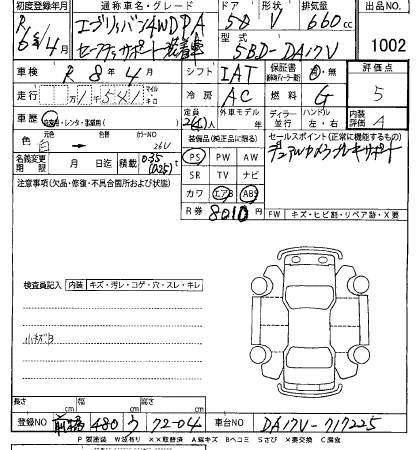 初度登録年月 通称車名・グレード ドア 形状 排気量 出品No.
R 6年/4月 エブリィバン4WDPA 5D V 660cc
セーフティサポート装着車 型式 3BD-DA17V 1002
車検 R 8年 4月 シフト IAT 保証書 有・無 評価点
走行 万 千 541 マイル キロ 冷房 AC 燃料 G 5
車歴 自家用・レンタ・事業用( ) 定員 2(4)人 外車モデル 年 ディーラー 並行 ハンドル 左・右 内装評価 A
色 元色 白 → カラーNO 26U 装備品(純正品に限る) セールスポイント(正常に機能するもの)
名義変更期限 月 日迄 積載 0.35(0.25)t PS PW AW デュアルカメラブレーキサポート
注意事項(欠品・修復・不具合箇所および状態) SR TV ナビ
カワ エアB ABS
R券 8010円 FW キズ・ヒビ割・リペア跡・X要
検査員記入 内装 キズ・汚レ・コゲ・穴・スレ・キレ
小キズ有
長さ cm 幅 cm 高さ cm
登録NO 前橋 480 う 72-04 車台NO DA17V-717225
P 要塗装 W波有り XX取替済 A線キズ Bヘコミ Sさび X要交換 C腐食